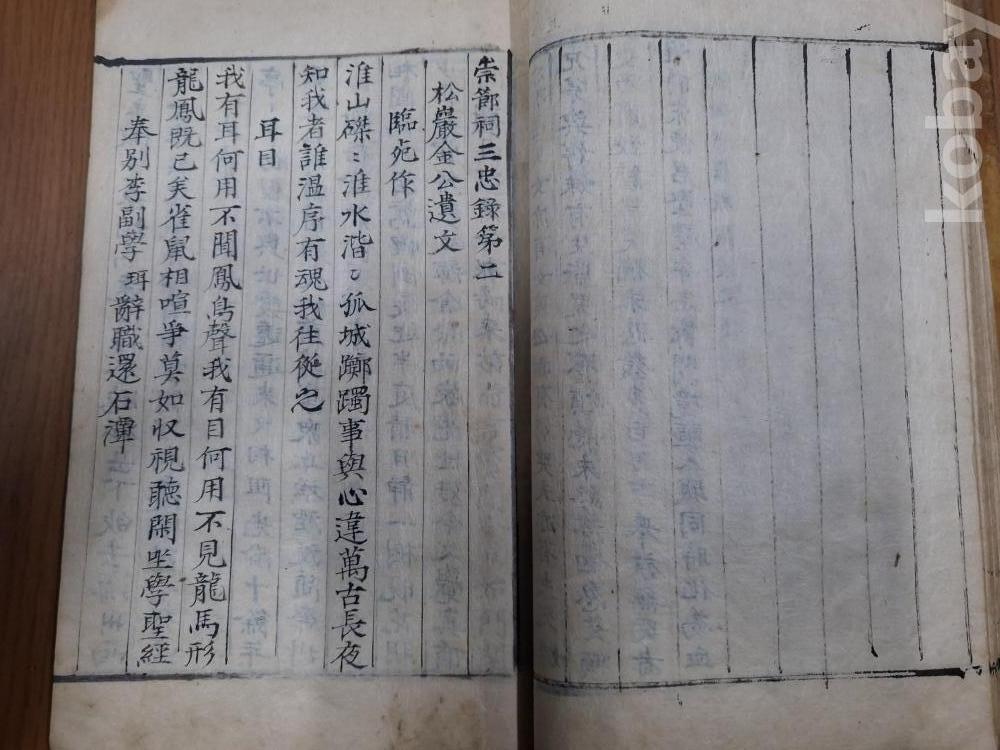 崇節祠三忠錄第二
松巖金公遺文
臨死作
淮山磔〻淮水潛〻孤城躑躅事與心違萬古長夜
知我者誰溫序有魂我往從之
耳目
我有耳何用不聞鳳鳥聲我有目何用不見龍馬形
龍鳳既已矣雀鼠相喧爭莫如収視聽閑坐學聖經
奉別李副學珥辭職還石潭
kobay